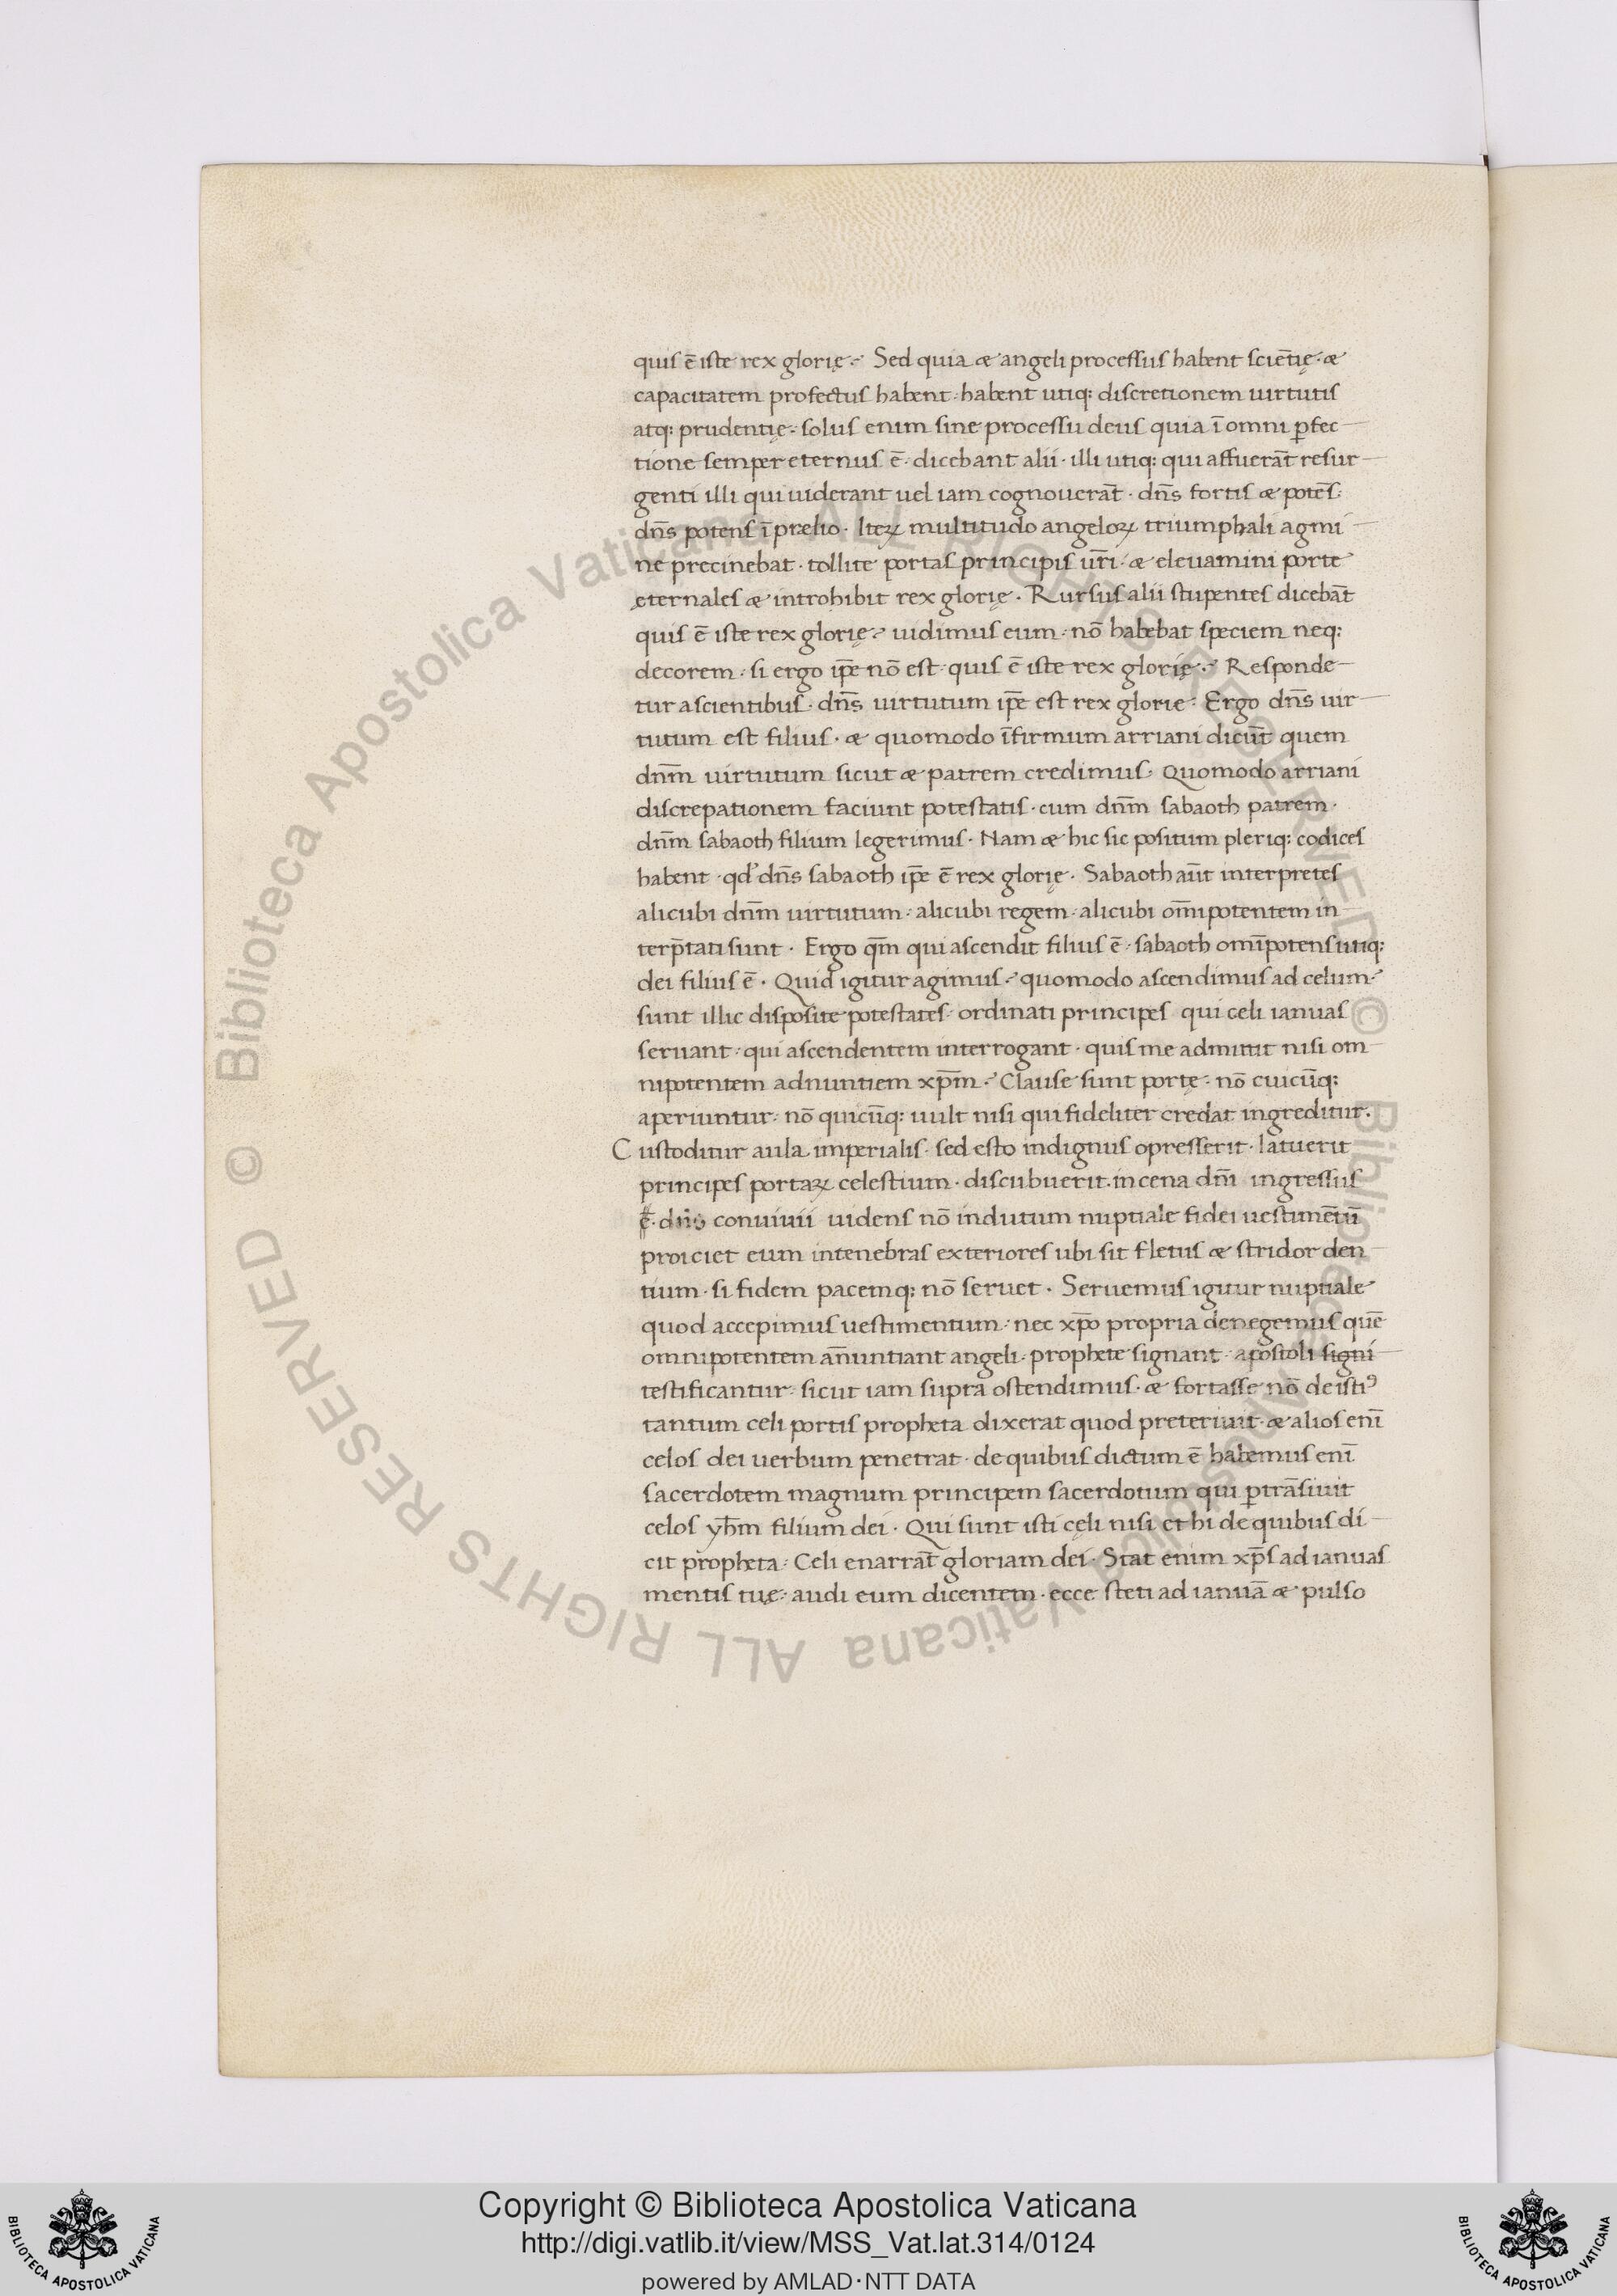 quis ē iste rex glorię· Sed quia æ angeli processus habent sciētię· æ
capacitatem profectus habent· habent utiq: discretionem uirtutis
atq: prudentię· solus enim sine processu deus quia ī omni ꝑfec
tione semper eternus ē· dicebant alii· illi utiq: qui affuerāt resur
genti illi qui uiderant uel iam cognouerāt· dn̄s fortis æ potēs:
dn̄s potens ī prælio· Iteꝝ multitudo angeloꝝ triumphali agmi
ne precinebat· tollite portas principis ur̄i· æ eleuamini porte
ęternales æ introhibit rex glorię· Rursus alii stupentes dicebāt
quis ē iste rex glorię· uidimus eum· nō habebat speciem neq:
decorem· si ergo ip̄e nō est· quis ē iste rex glorię· Responde
tur a scientibus· dn̄s uirtutum ip̄e est rex glorie· Ergo dn̄s uir
tutum est filius· æ quomodo īfirmum arriani dicūt quem
dn̄m uirtutum sicut æ patrem credimus· Quomodo arriani
discrepationem faciunt potestatis· cum dn̄m sabaoth patrem·
dn̄m sabaoth filium legerimus· Nam æ hic sic positum pleriq: codices
habent· qd' dn̄s sabaoth ip̄e ē rex glorię· Sabaoth aūt interpretes
alicubi dn̄m uirtutum· alicubi regem· alicubi om̄ipotentem in
terp̄tati sunt· Ergo qm̄ qui ascendit filius ē· sabaoth omīpotens utiq:
dei filius ē· Quid igitur agimus· quomodo ascendimus ad celum·
sunt illic disposite potestates· ordinati principes qui celi ianuas
seruant· qui ascendentem interrogant· quis me admittit nisi om
nipotentem adnuntiem xp̄m· Clause sunt portę· nō cuicūq:
aperiuntur· nō quicūq: uult nisi qui fideliter credat ingreditur·
Custoditur aula imperialis· sed esto indignus opresserit· latuerit
principes portaꝝ celestium· discubuerit in cena dn̄i ingressus
ē· dn̄s conuiuii uidens nō indutum nuptiale fidei uestimētū
proiciet eum in tenebras exteriores ubi sit fletus æ stridor den
tium· si fidem pacemq: nō seruet· Seruemus igitur nuptiale
quod accepimus uestimentum· nec xp̄o propria denegemus quē
omnipotentem an̄untiant angeli· prophete signant· apostoli signi
testificantur· sicut iam supra ostendimus· æ fortasse nō de istiꝰ
tantum celi portis propheta dixerat quod preteriuit· æ alios enī
celos dei uerbum penetrat· de quibus dictum ē habemus enī
sacerdotem magnum principem sacerdotum qui ꝑtrāsiuit
celos yh̄m filium dei· Qui sunt isti cęli nisi et hi de quibus di
cit propheta· Celi enarrāt gloriam dei· Stat enim xp̄s ad ianuas
mentis tuę· audi eum dicentem· ecce steti ad ianuā æ pulso
© Biblioteca Apostolica Vaticana ALL RIGHTS RESERVED © Biblioteca Apostolica Vaticana ALL RIGHTS RESERVED
Copyright © Biblioteca Apostolica Vaticana
http://digi.vatlib.it/view/MSS_Vat.lat.314/0124
powered by AMLAD·NTT DATA
BIBLIOTECA APOSTOLICA VATICANA
BIBLIOTECA APOSTOLICA VATICANA